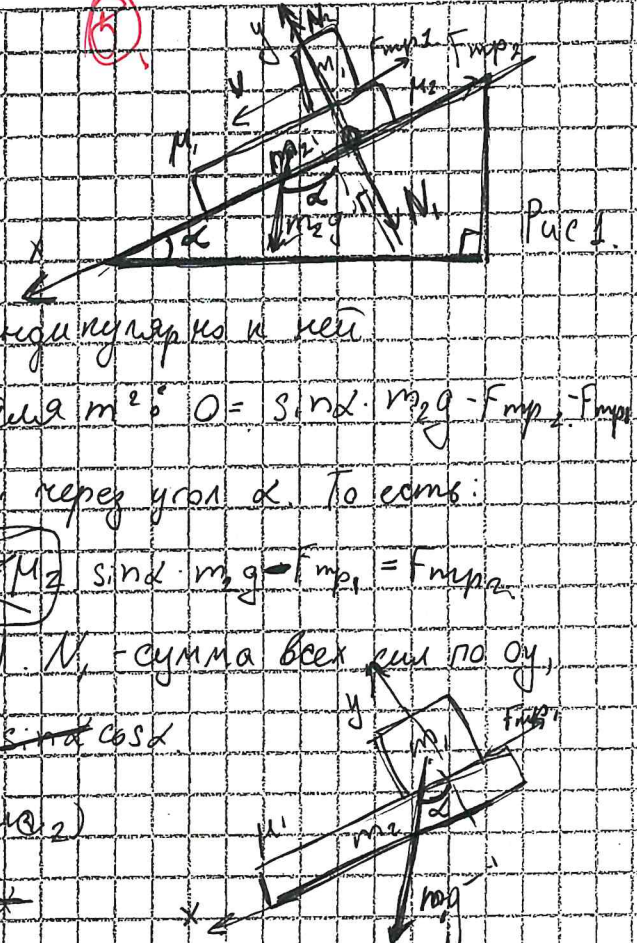 5
y N₂
m₁ Fтр1 Fтр₂
V μ₂
μ₁ m₂
α N₁
α m₂g Рис 1.
X
ндикулярно к ней
для m²: 0 = sinα · m₂g - Fтр₂ - Fтр₁
через угол α. То есть:
μ₂ sinα · m₂g - Fтр₁ = Fтр₂
N₁ - сумма всех сил по Oy,
sinα cosα
y Fтр₁
m₁
α
μ₁ m₂
X